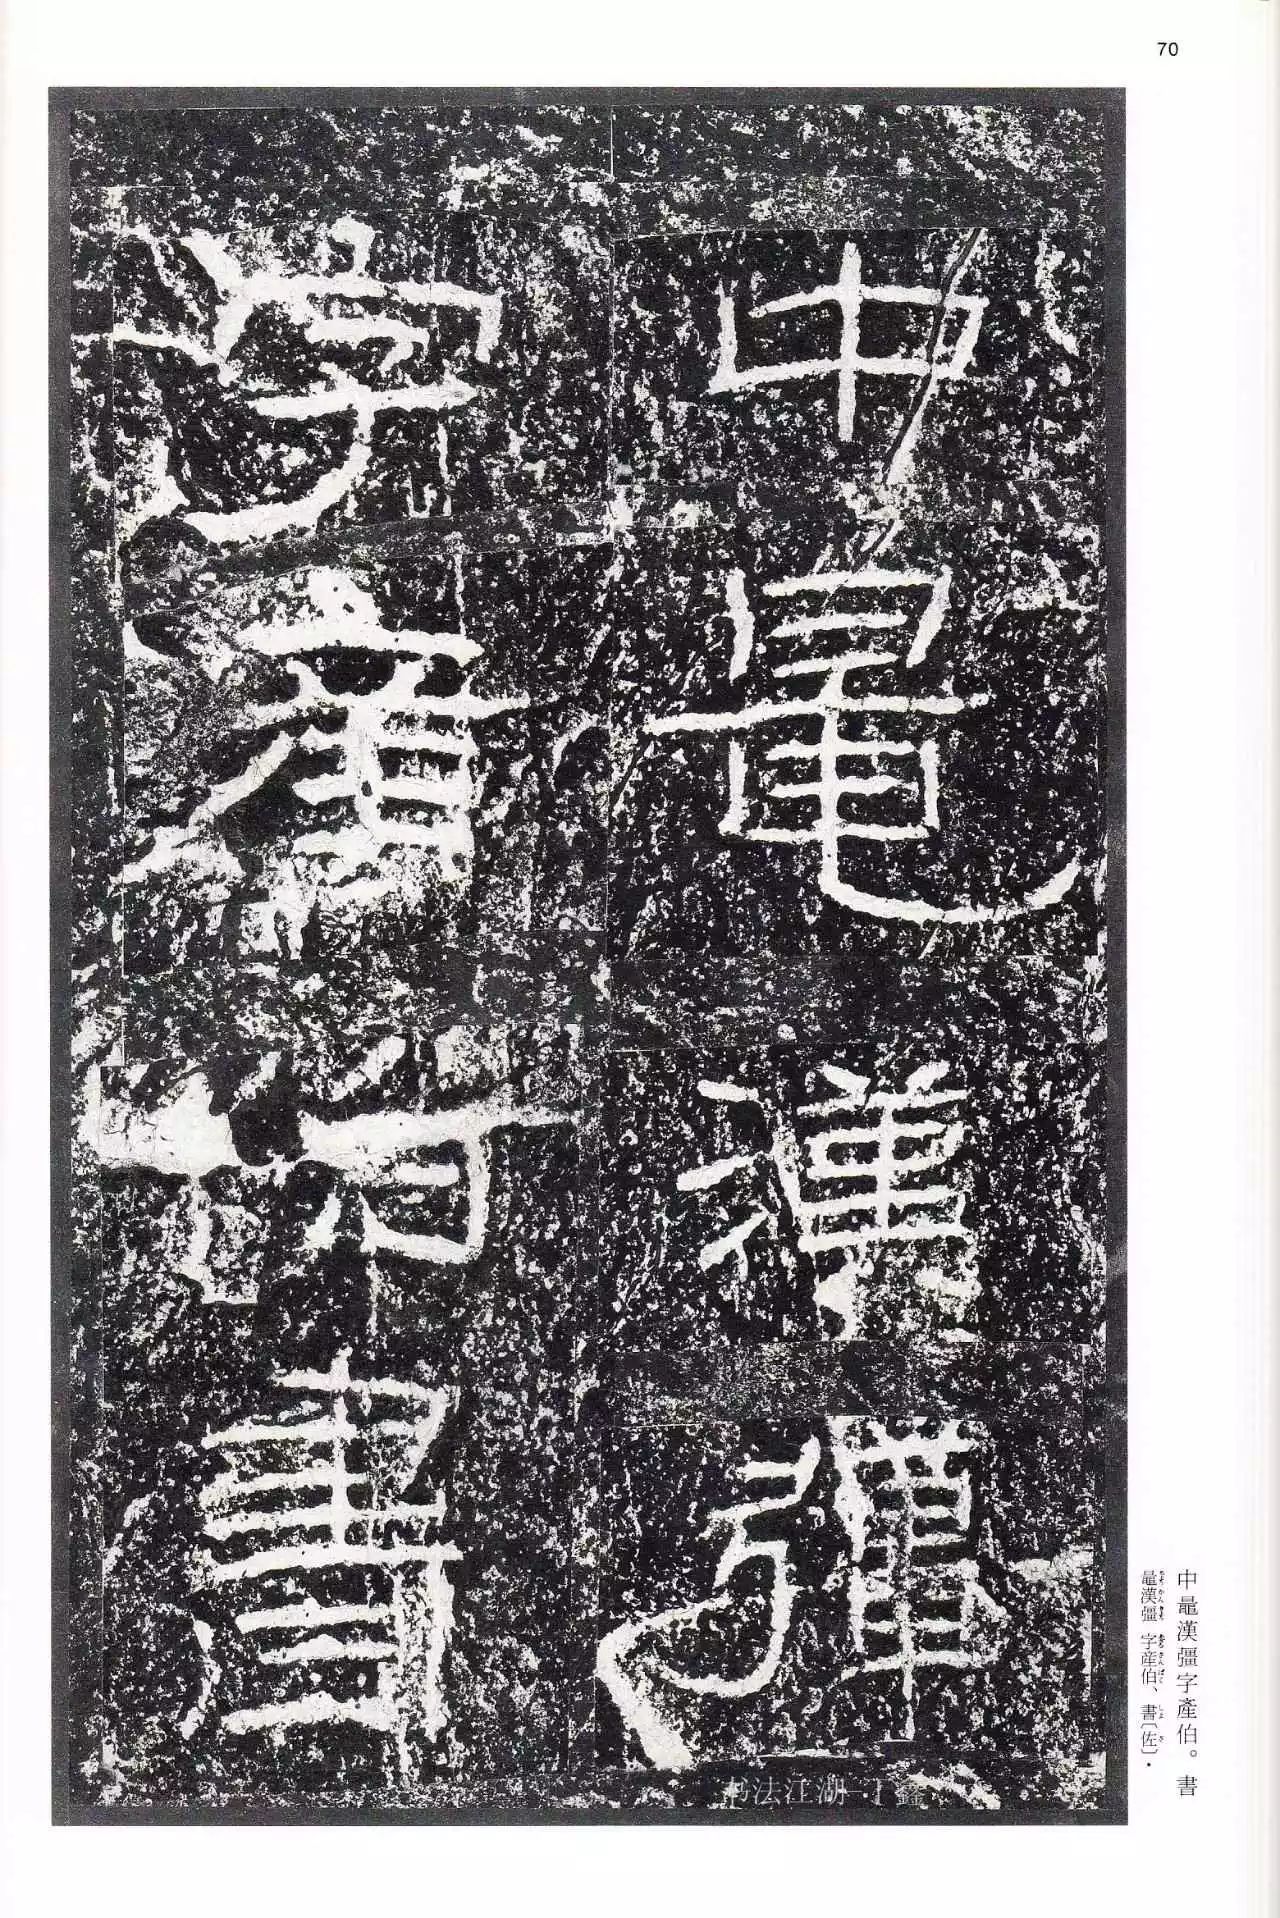 70
中鼂漢彊
字產伯書
中鼂漢彊字產伯。書
鼂漢彊 字産伯、書〔佐〕・
书法江湖